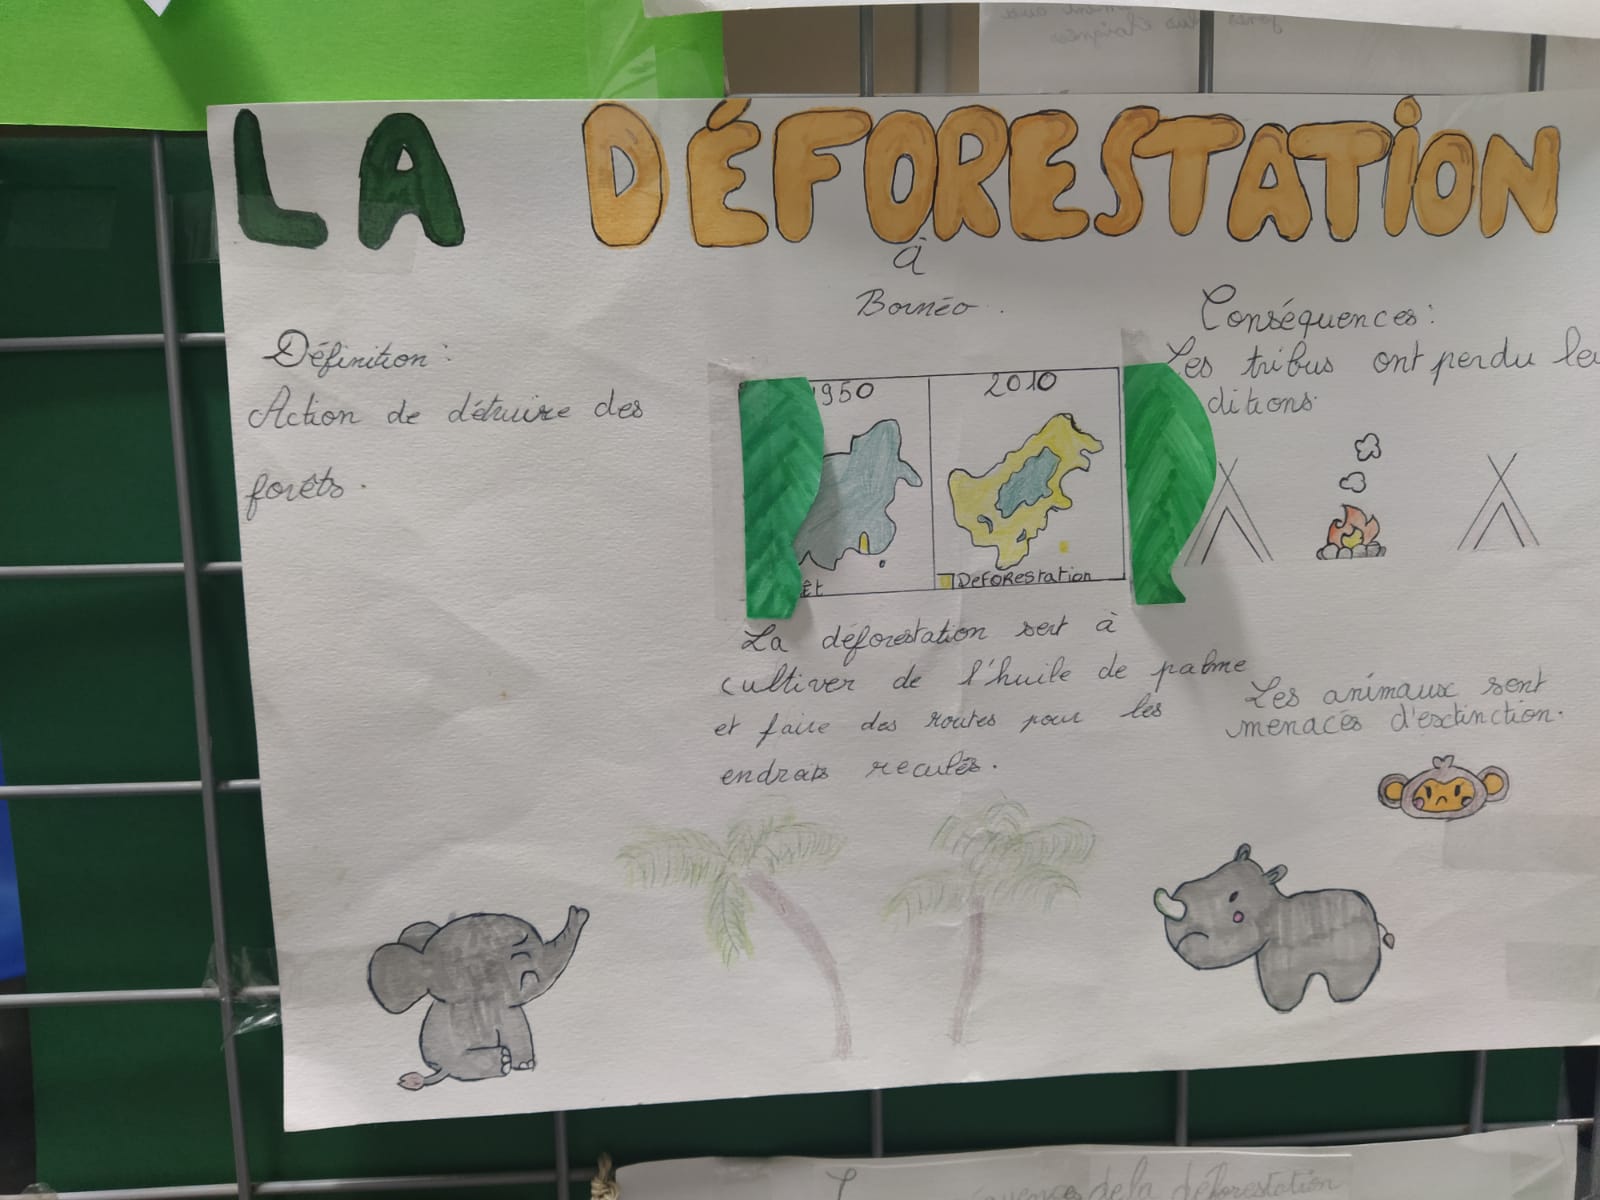 LA DÉFORESTATION
à
Bornéo.
Définition:
Action de détruire des
forêts.
950
2010
êt
DeFOREstation
La déforestation sert à
cultiver de l'huile de palme
et faire des routes pour les
endroits reculés.
Conséquences:
Les tribus ont perdu le
ditions.
Les animaux sont
menacés d'extinction.
de la déforestation